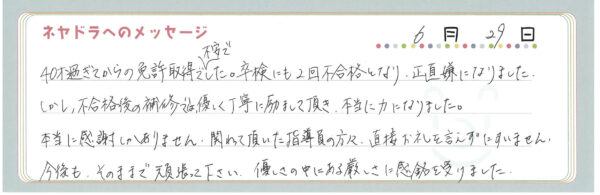 ネヤドラへのメッセージ
6月29日
不安で
40才過ぎてからの免許取得でした。卒検にも2回不合格となり、正直嫌になりました。
しかし、不合格後の補修では優しく丁寧に励まして頂き、本当に力になりました。
本当に感謝しかありません。関わって頂いた指導員の方々、直接お礼を言えずにすいません。
今後も、そのままで頑張って下さい。優しさの中にある厳しさに感銘を受けました。